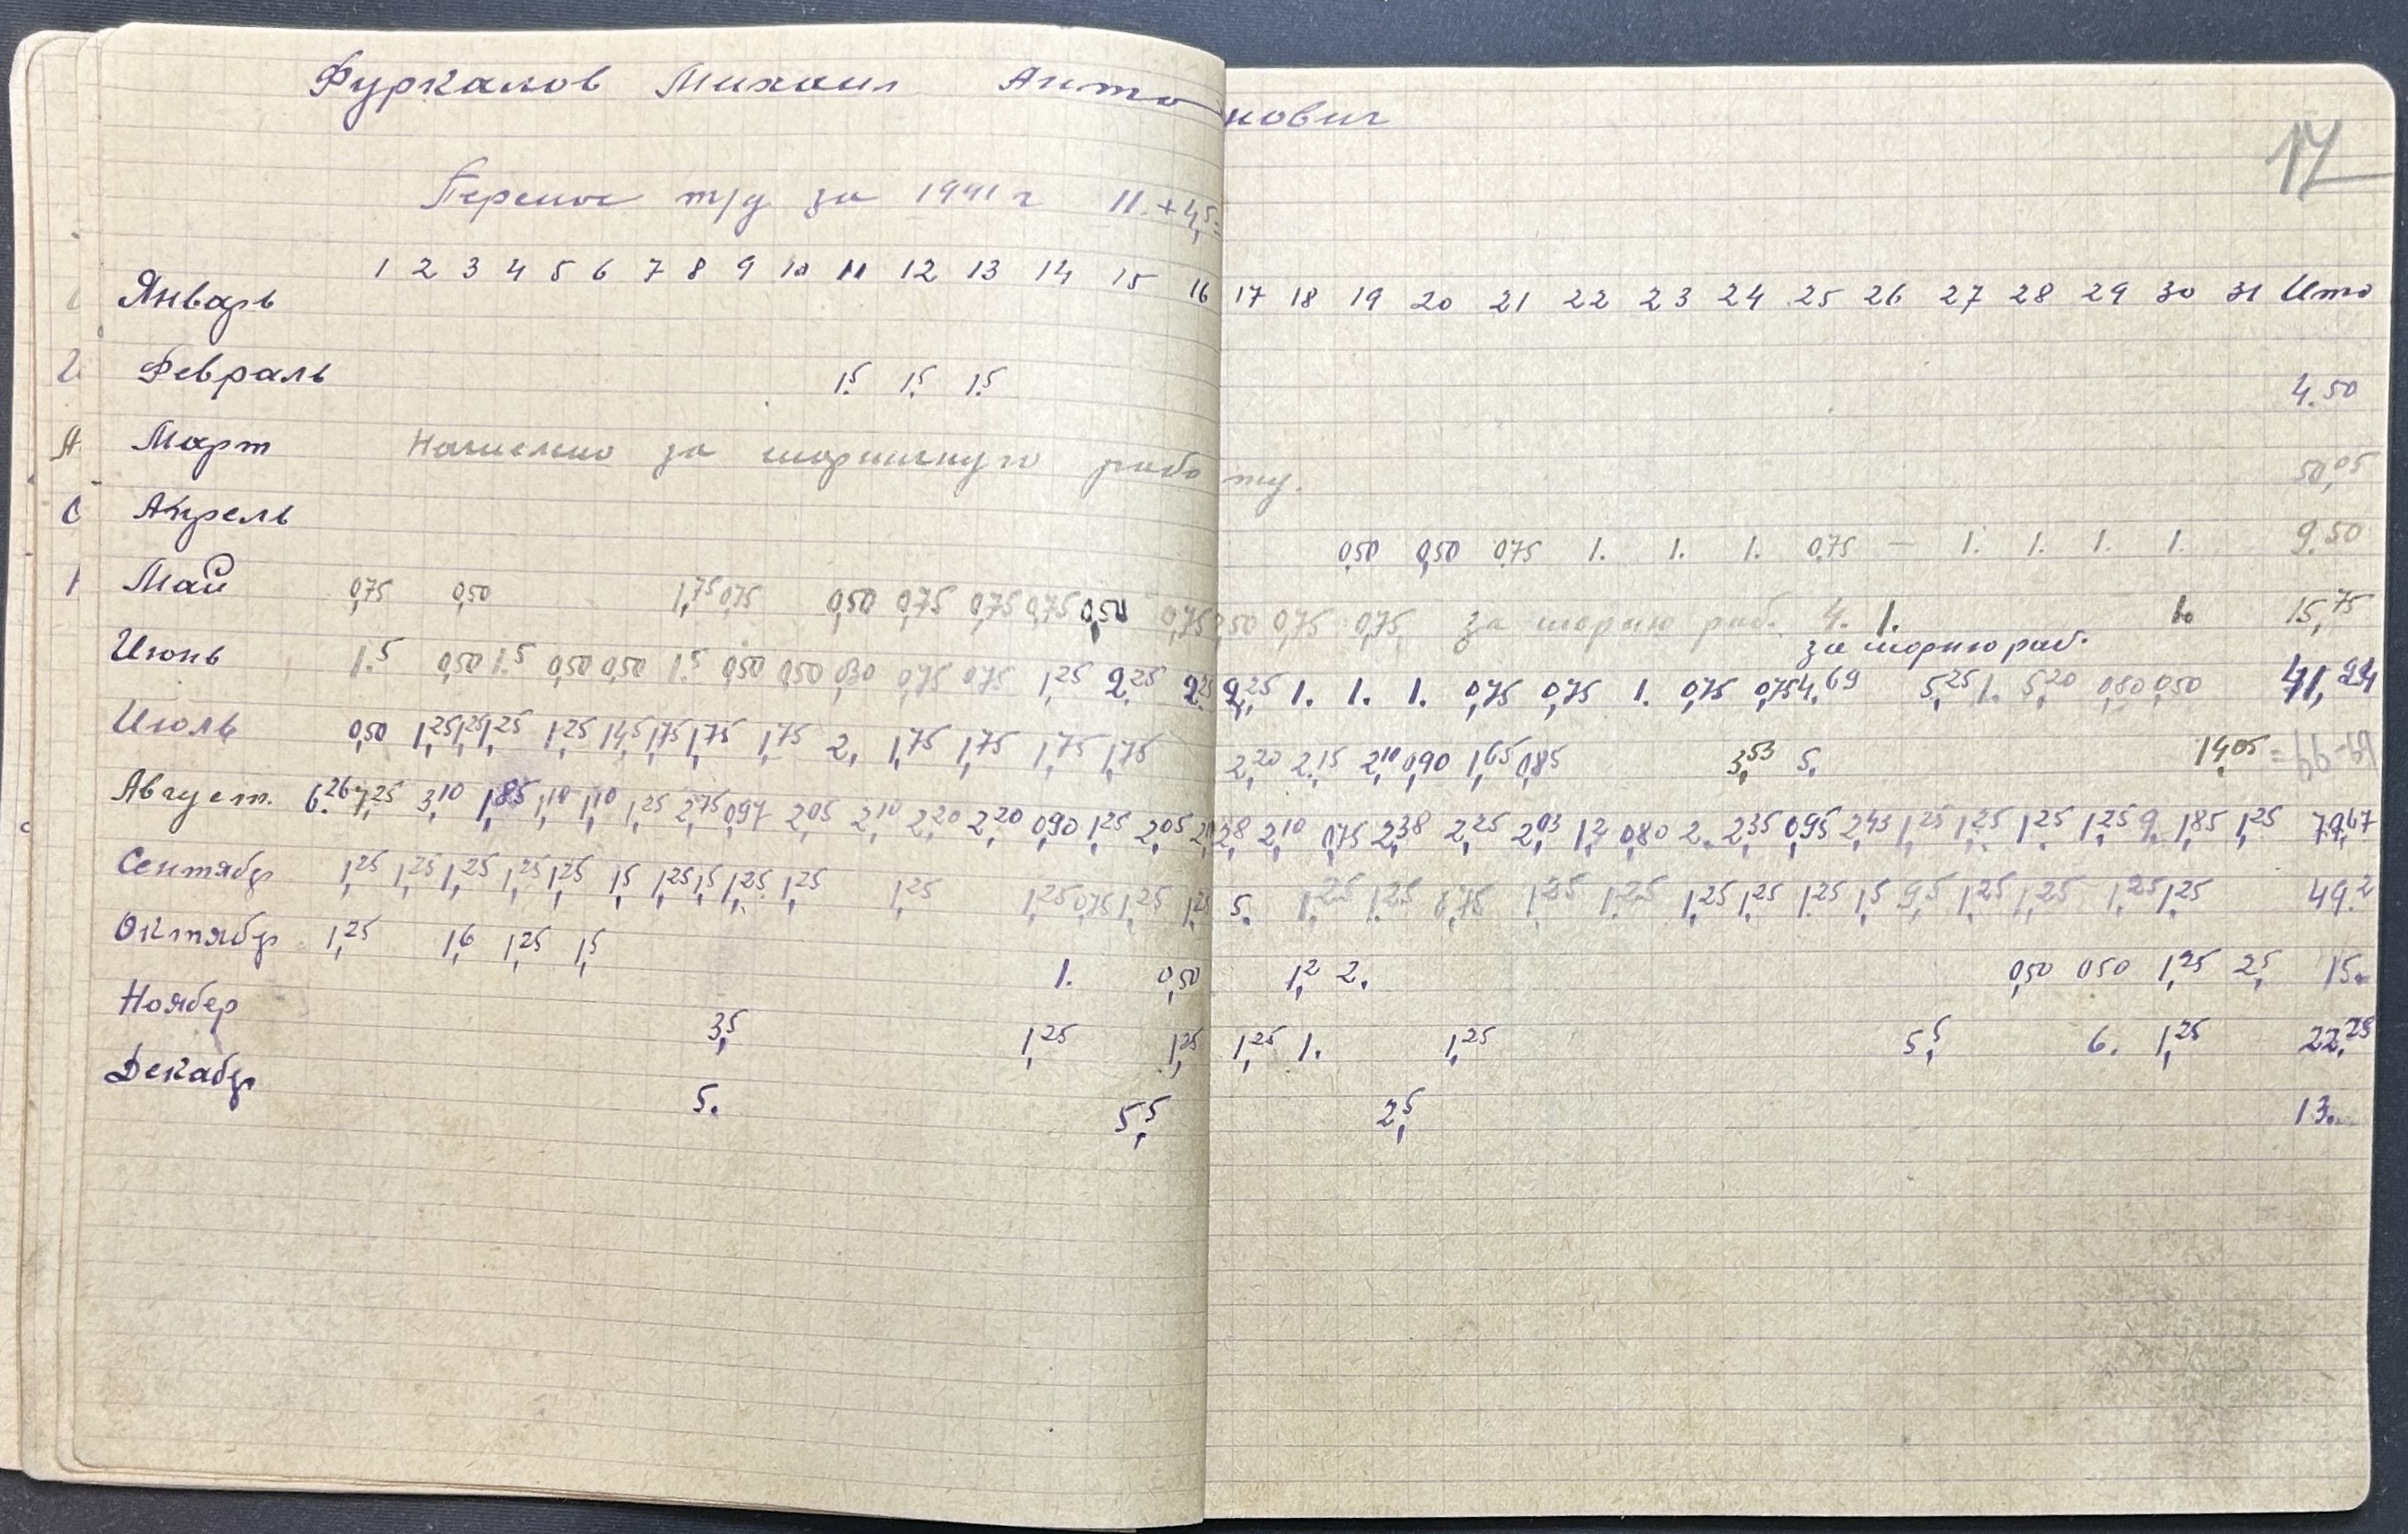 Фуркалов Михаил Антонович
17
Перенос т/д за 1941 г 11. + 4,5 =
1 2 3 4 5 6 7 8 9 10 11 12 13 14 15 16 17 18 19 20 21 22 23 24 25 26 27 28 29 30 31 Ито
Январь
Февраль 1.5 1.5 1.5 4.50
Март Начислено за шорничную работу. 50,05
Апрель 0,50 0,50 0,75 1. 1. 1. 0,75 — 1. 1. 1. 1. 9.50
Май 0,75 0,50 1,75 0,75 0,50 0,75 0,75 0,75 0,50 0,75 0,50 0,75 0,75 за шорню раб. 4. 1. 1. 15,75
за шорню раб.
Июнь 1.5 0,50 1.5 0,50 0,50 1.5 0,50 0,50 0,30 0,75 0,75 1,25 2,25 2,25 2,25 1. 1. 1. 0,75 0,75 1. 0,75 0,75 4,69 5,25 1. 5,20 0,80 0,50 41,94
Июль 0,50 1,25 1,25 1,25 1,25 1,45 1,75 1,75 1,75 2, 1,75 1,75 1,75 1,75 2,20 2,15 2,10 0,90 1,65 0,85 3,53 5. 14,05 =
Август. 6.26 7,25 3,10 1,85 1,10 1,10 1,25 2,75 0,97 2,05 2,10 2,20 2,20 0,90 1,25 2,05 2,10 0,75 2,38 2,25 2,03 1,2 0,80 2. 2,35 0,95 2,43 1,25 1,25 1,25 1,25 9. 1,85 1,25 79,67
Сентябр 1,25 1,25 1,25 1,25 1,25 1,5 1,25 1,5 1,25 1,25 1,25 1,25 0,75 1,25 1,25 5. 1,25 1,25 8,75 1,25 1,25 1,25 1,25 1,25 1,5 9,5 1,25 1,25 1,25 1,25 49.2
Октябр 1,25 1,6 1,25 1,5 1. 0,50 1,2 2. 0,50 0,50 1,25 2,5 15.
Ноябер 3,5 1,25 1,25 1,25 1. 1,25 5,5 6. 1,25 22,25
Декабр 5. 5,5 2,5 13.